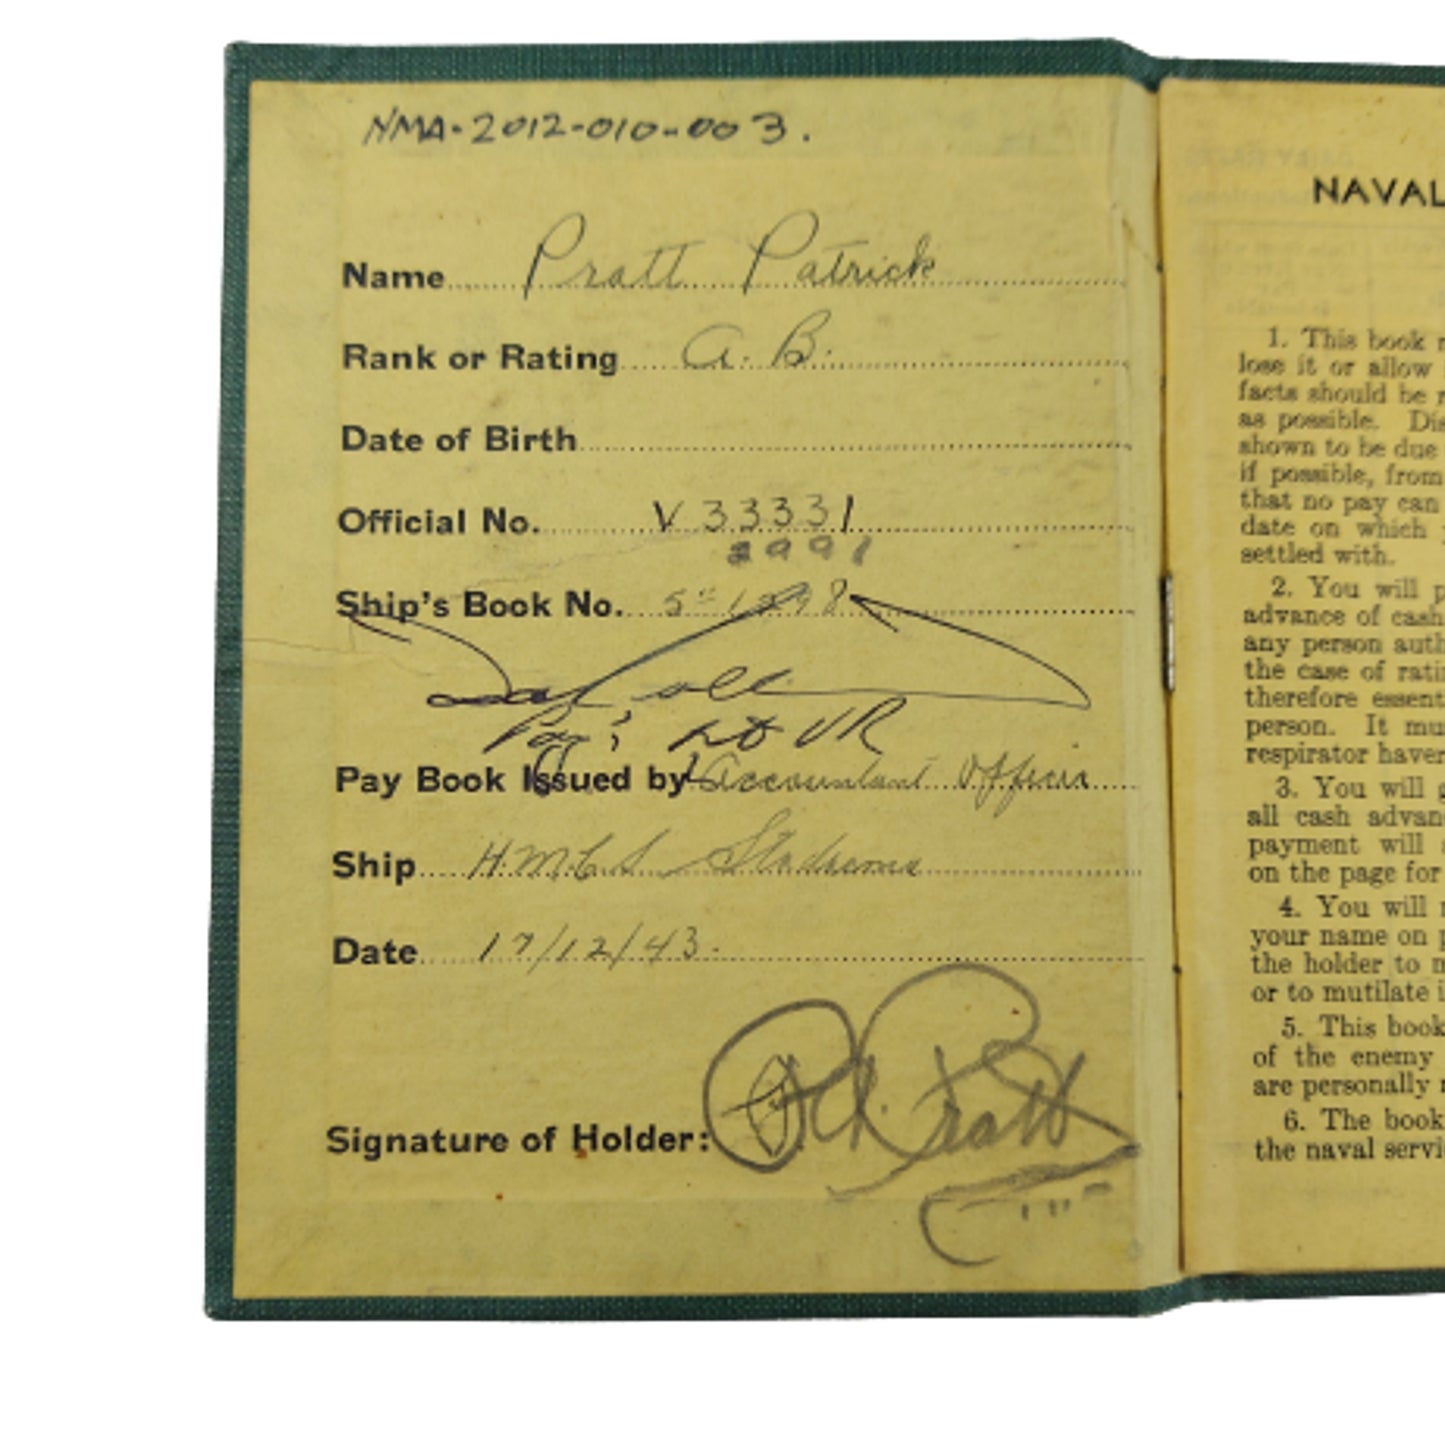 NMA-2012-010-003.
Name Pratt Patrick
Rank or Rating A. B.
Date of Birth
Official No. V 33331
2991
Ship's Book No. 5
RCNVR
Pay Book Issued by Accountant Officer
Ship H.M.C.S. Stadacona
Date 17/12/43.
Signature of Holder: Pratt
NAVAL
1. This book
lose it or allow
facts should be
as possible. Dis
shown to be due
if possible, from
that no pay can
date on which
settled with.
2. You will p
advance of cash
any person auth
the case of rati
therefore essent
person. It mu
respirator haver
3. You will g
all cash advan
payment will
on the page for
4. You will
your name on p
the holder to m
or to mutilate i
5. This book
of the enemy
are personally
6. The book
the naval servi